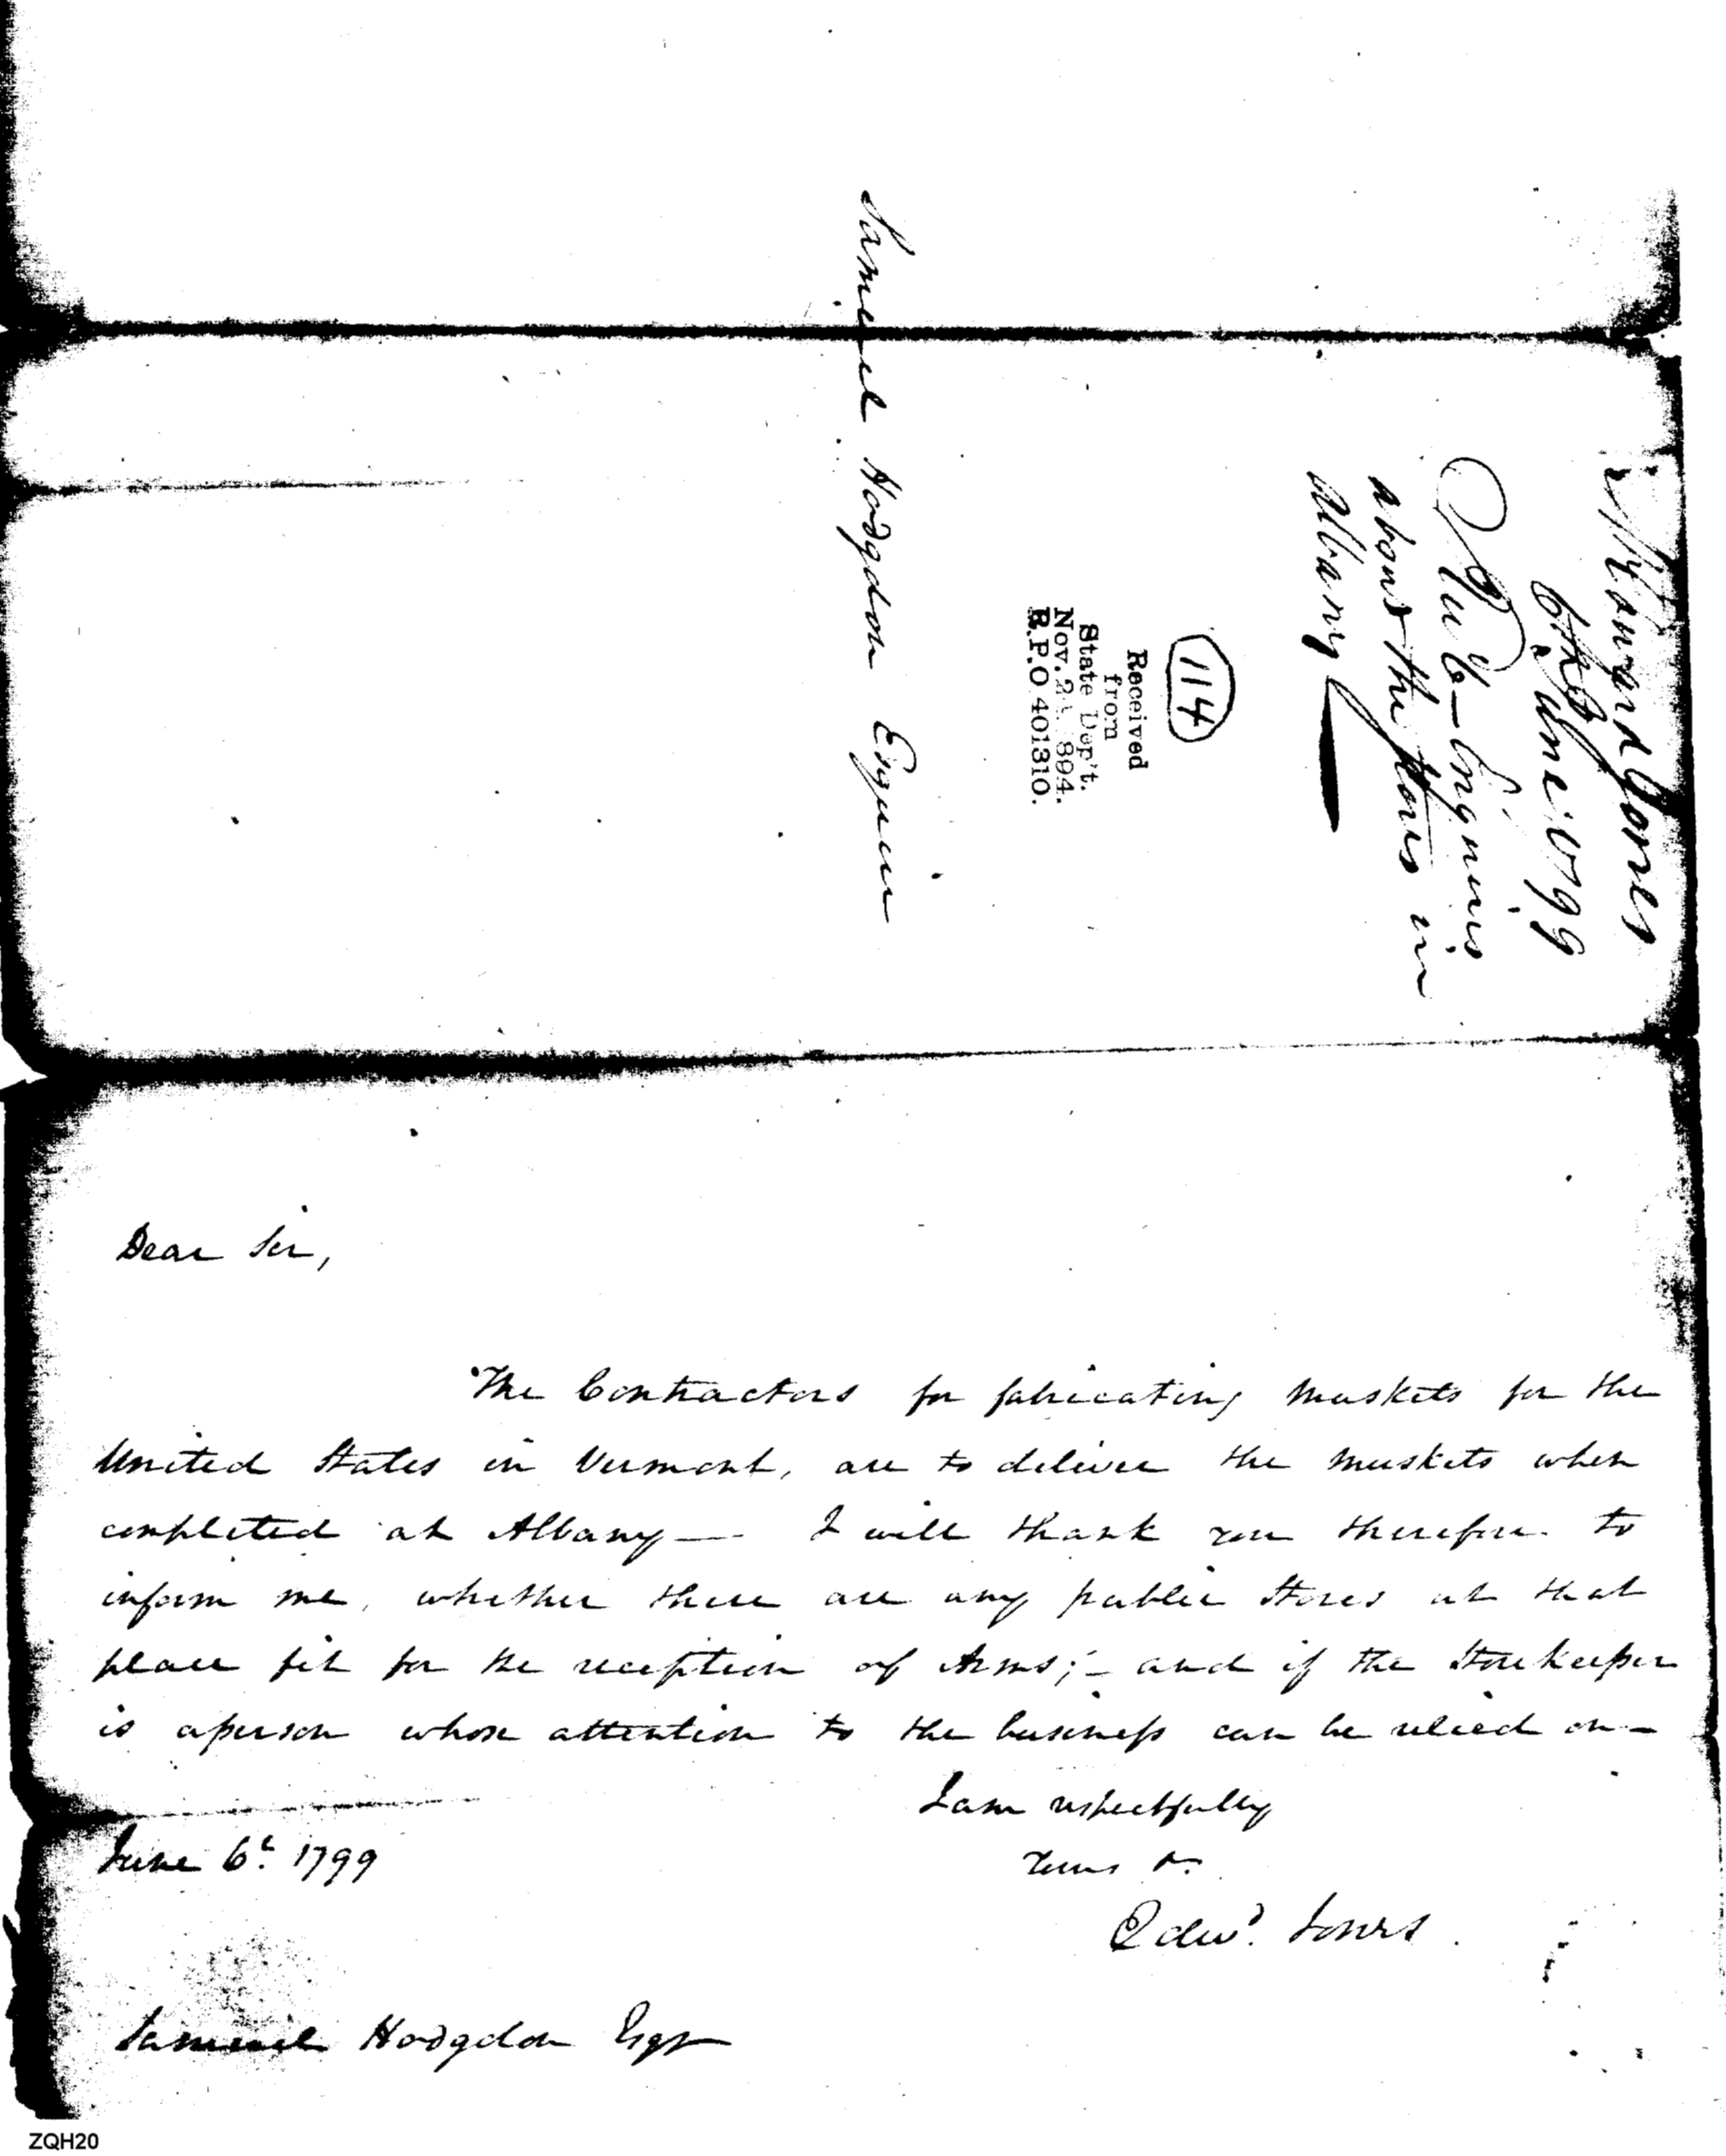 Samuel Hodgdon Esquire
Edward Jones
6th June 1799
about the Stores in
Albany
114
Received
from
State Dep't.
Nov. 894.
R.P.O 401310.
Dear Sir,
The Contractors for fabricating muskets for the
United States in Vermont, are to deliver the muskets when
completed at Albany — I will thank you therefore to
inform me, whether there are any public Stores at that
place fit for the reception of Arms; – and if the Storekeeper
is a person whose attention to the business can be relied on –
I am respectfully
Yours &c
Edwd. Jones.
June 6t. 1799
Samuel Hodgdon Esqr
ZQH20